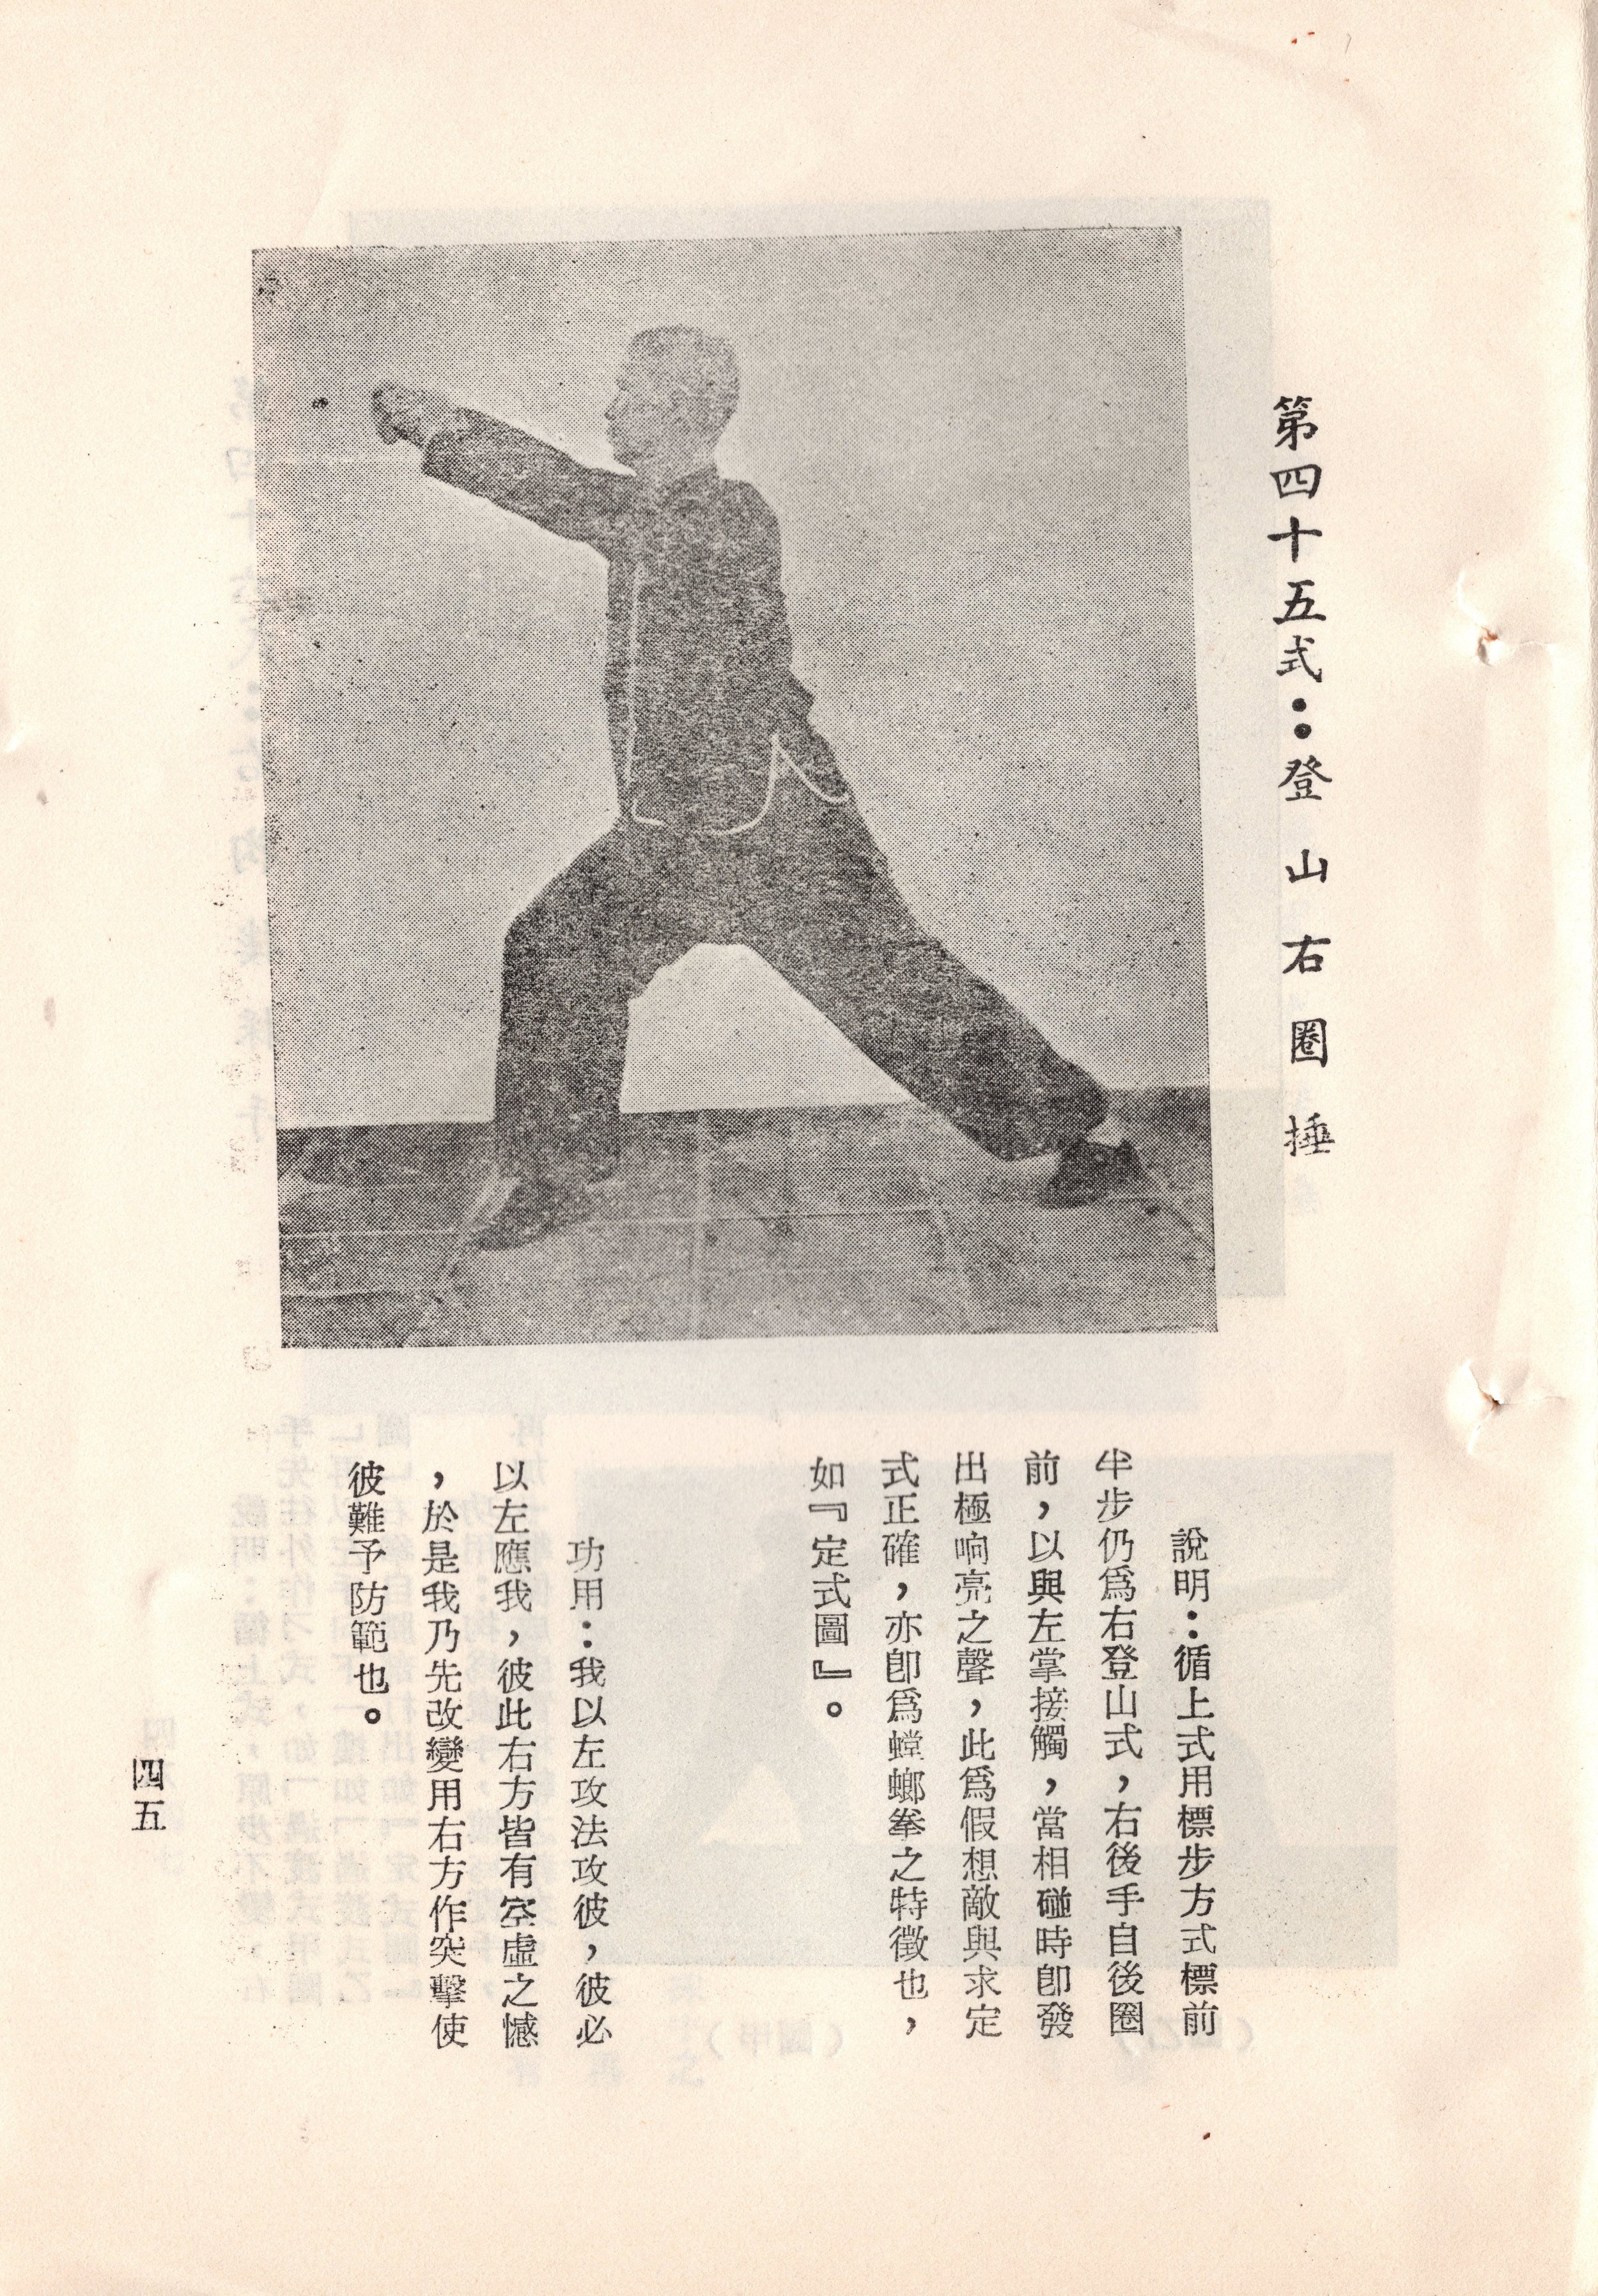 第四十五式：登山右圈捶
說明：循上式用標步方式標前
半步仍爲右登山式，右後手自後圈
前，以與左掌接觸，當相碰時卽發
出極响亮之聲，此爲假想敵與求定
式正確，亦卽爲螳螂拳之特徵也，
如『定式圖』。
功用：我以左攻法攻彼，彼必
以左應我，彼此右方皆有空虛之憾
，於是我乃先改變用右方作突擊使
彼難予防範也。
四五